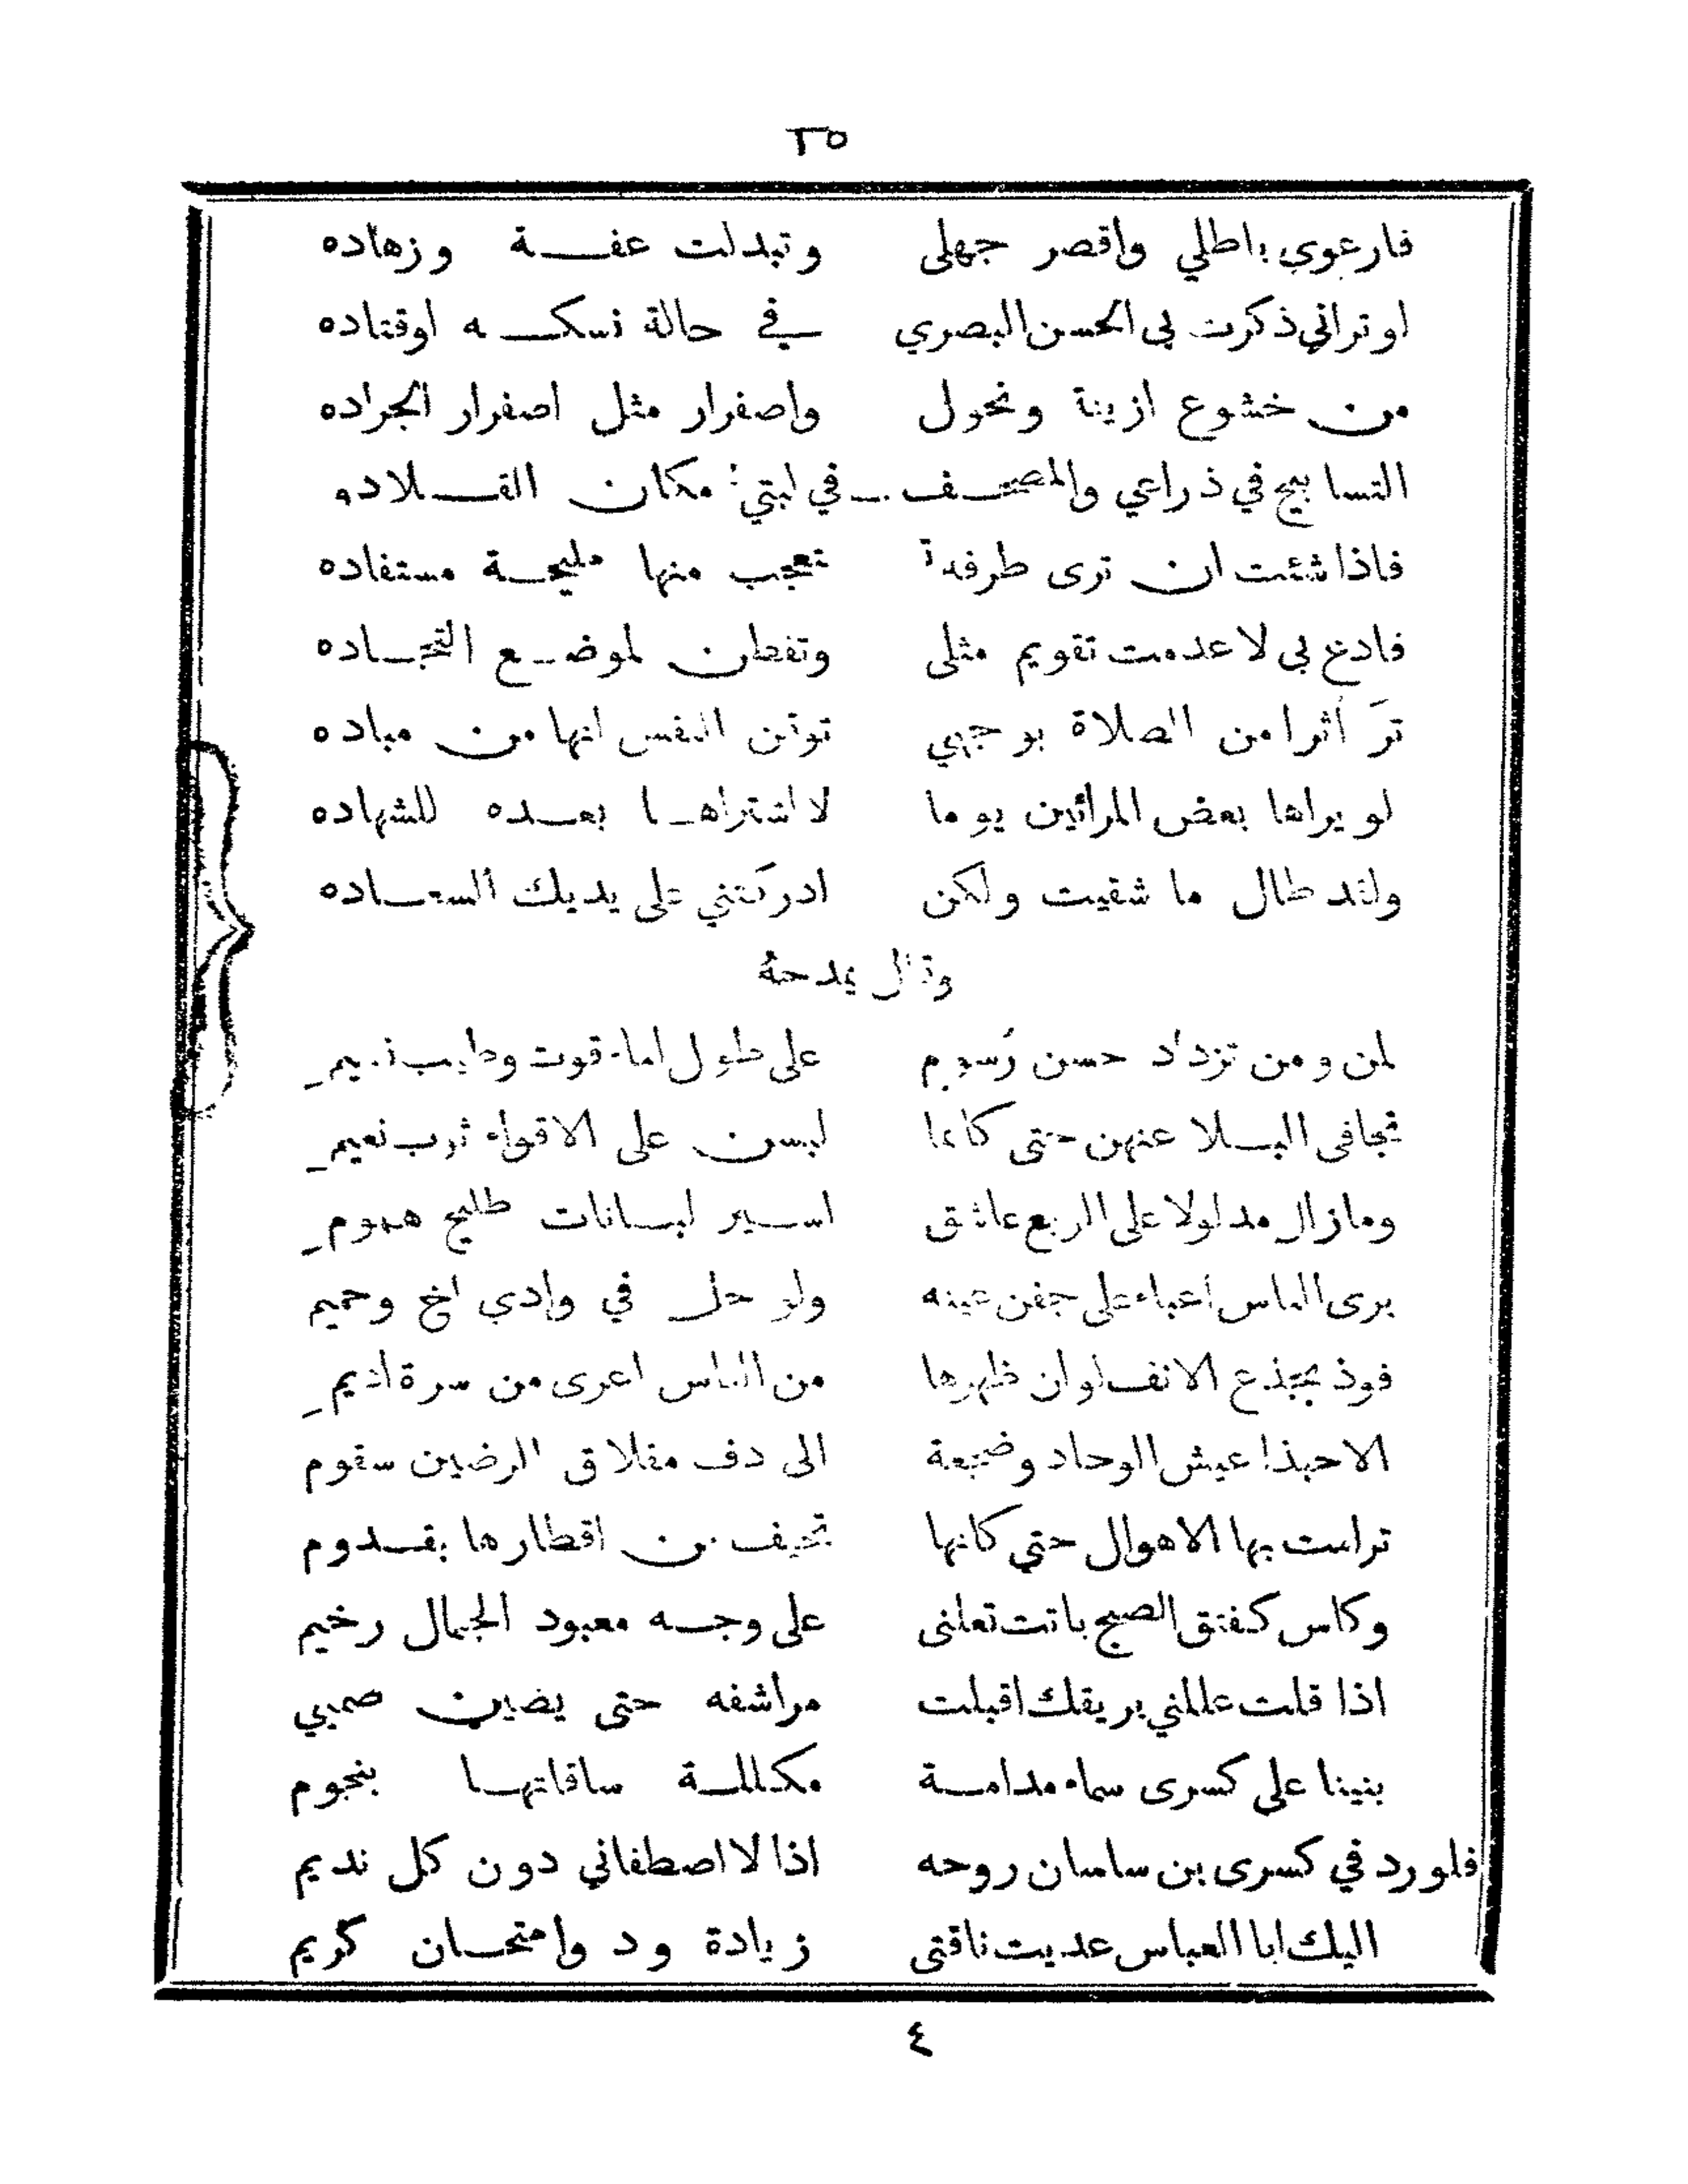 ٢٥
فارعوى باطلي واقصر جهلى وتبدلت عفة وزهاده
او تراني ذكرت بي الحسن البصري في حالة نسكه اوقتاده
من خشوع ازينة ونحول واصفرار مثل اصفرار الجراده
التسابيح في ذراعي والمصحف في لبتي مكان القلاده
فاذا شئت ان ترى طرفة تعجب منها مليحة مستفاده
فادع بي لا عدمت تقويم مثلى وتفطن لموضع التجاده
ترَ أثرا من الصلاة بوجهي توقن النفس انها من عباده
لو يراها بعض المرائين يوما لاشتراها بعده للشهاده
ولقد طال ما شقيت ولكن ادركتني على يديك السعاده
وقال يمدحهُ
لمن ومن تزداد حسن رُسوم على طول ما اقوت وطيب نسيم
تجافى البلا عنهن حتى كانما لبسن على الاقواء ثوب نعيم
وما زال مدلولا على الربع عاشق اسير لبانات طليح هموم
يرى الناس اعباء على جفن عينه ولو حل في وادي اخ وحميم
فوذ بجذع الانف لو ان ظهرها من الناس اعرى من سرة اديم
الا حبذا عيش الوحاد وضجعة الى دف مقلاق الرضين سقوم
ترامت بها الاهوال حتي كانها تحيف من اقطارها بقدوم
وكاس كفتق الصبح باتت تعلنى على وجه معبود الجمال رخيم
اذا قلت عللني بريقك اقبلت مراشفه حتى يضين صميي
بنينا على كسرى سماء مدامة مكللة ساقاتها بنجوم
فلو رد في كسرى بن ساسان روحه اذا لاصطفاني دون كل نديم
اليك ابا العباس عديت ناقتى زيادة ود وامتحان كريم
٤